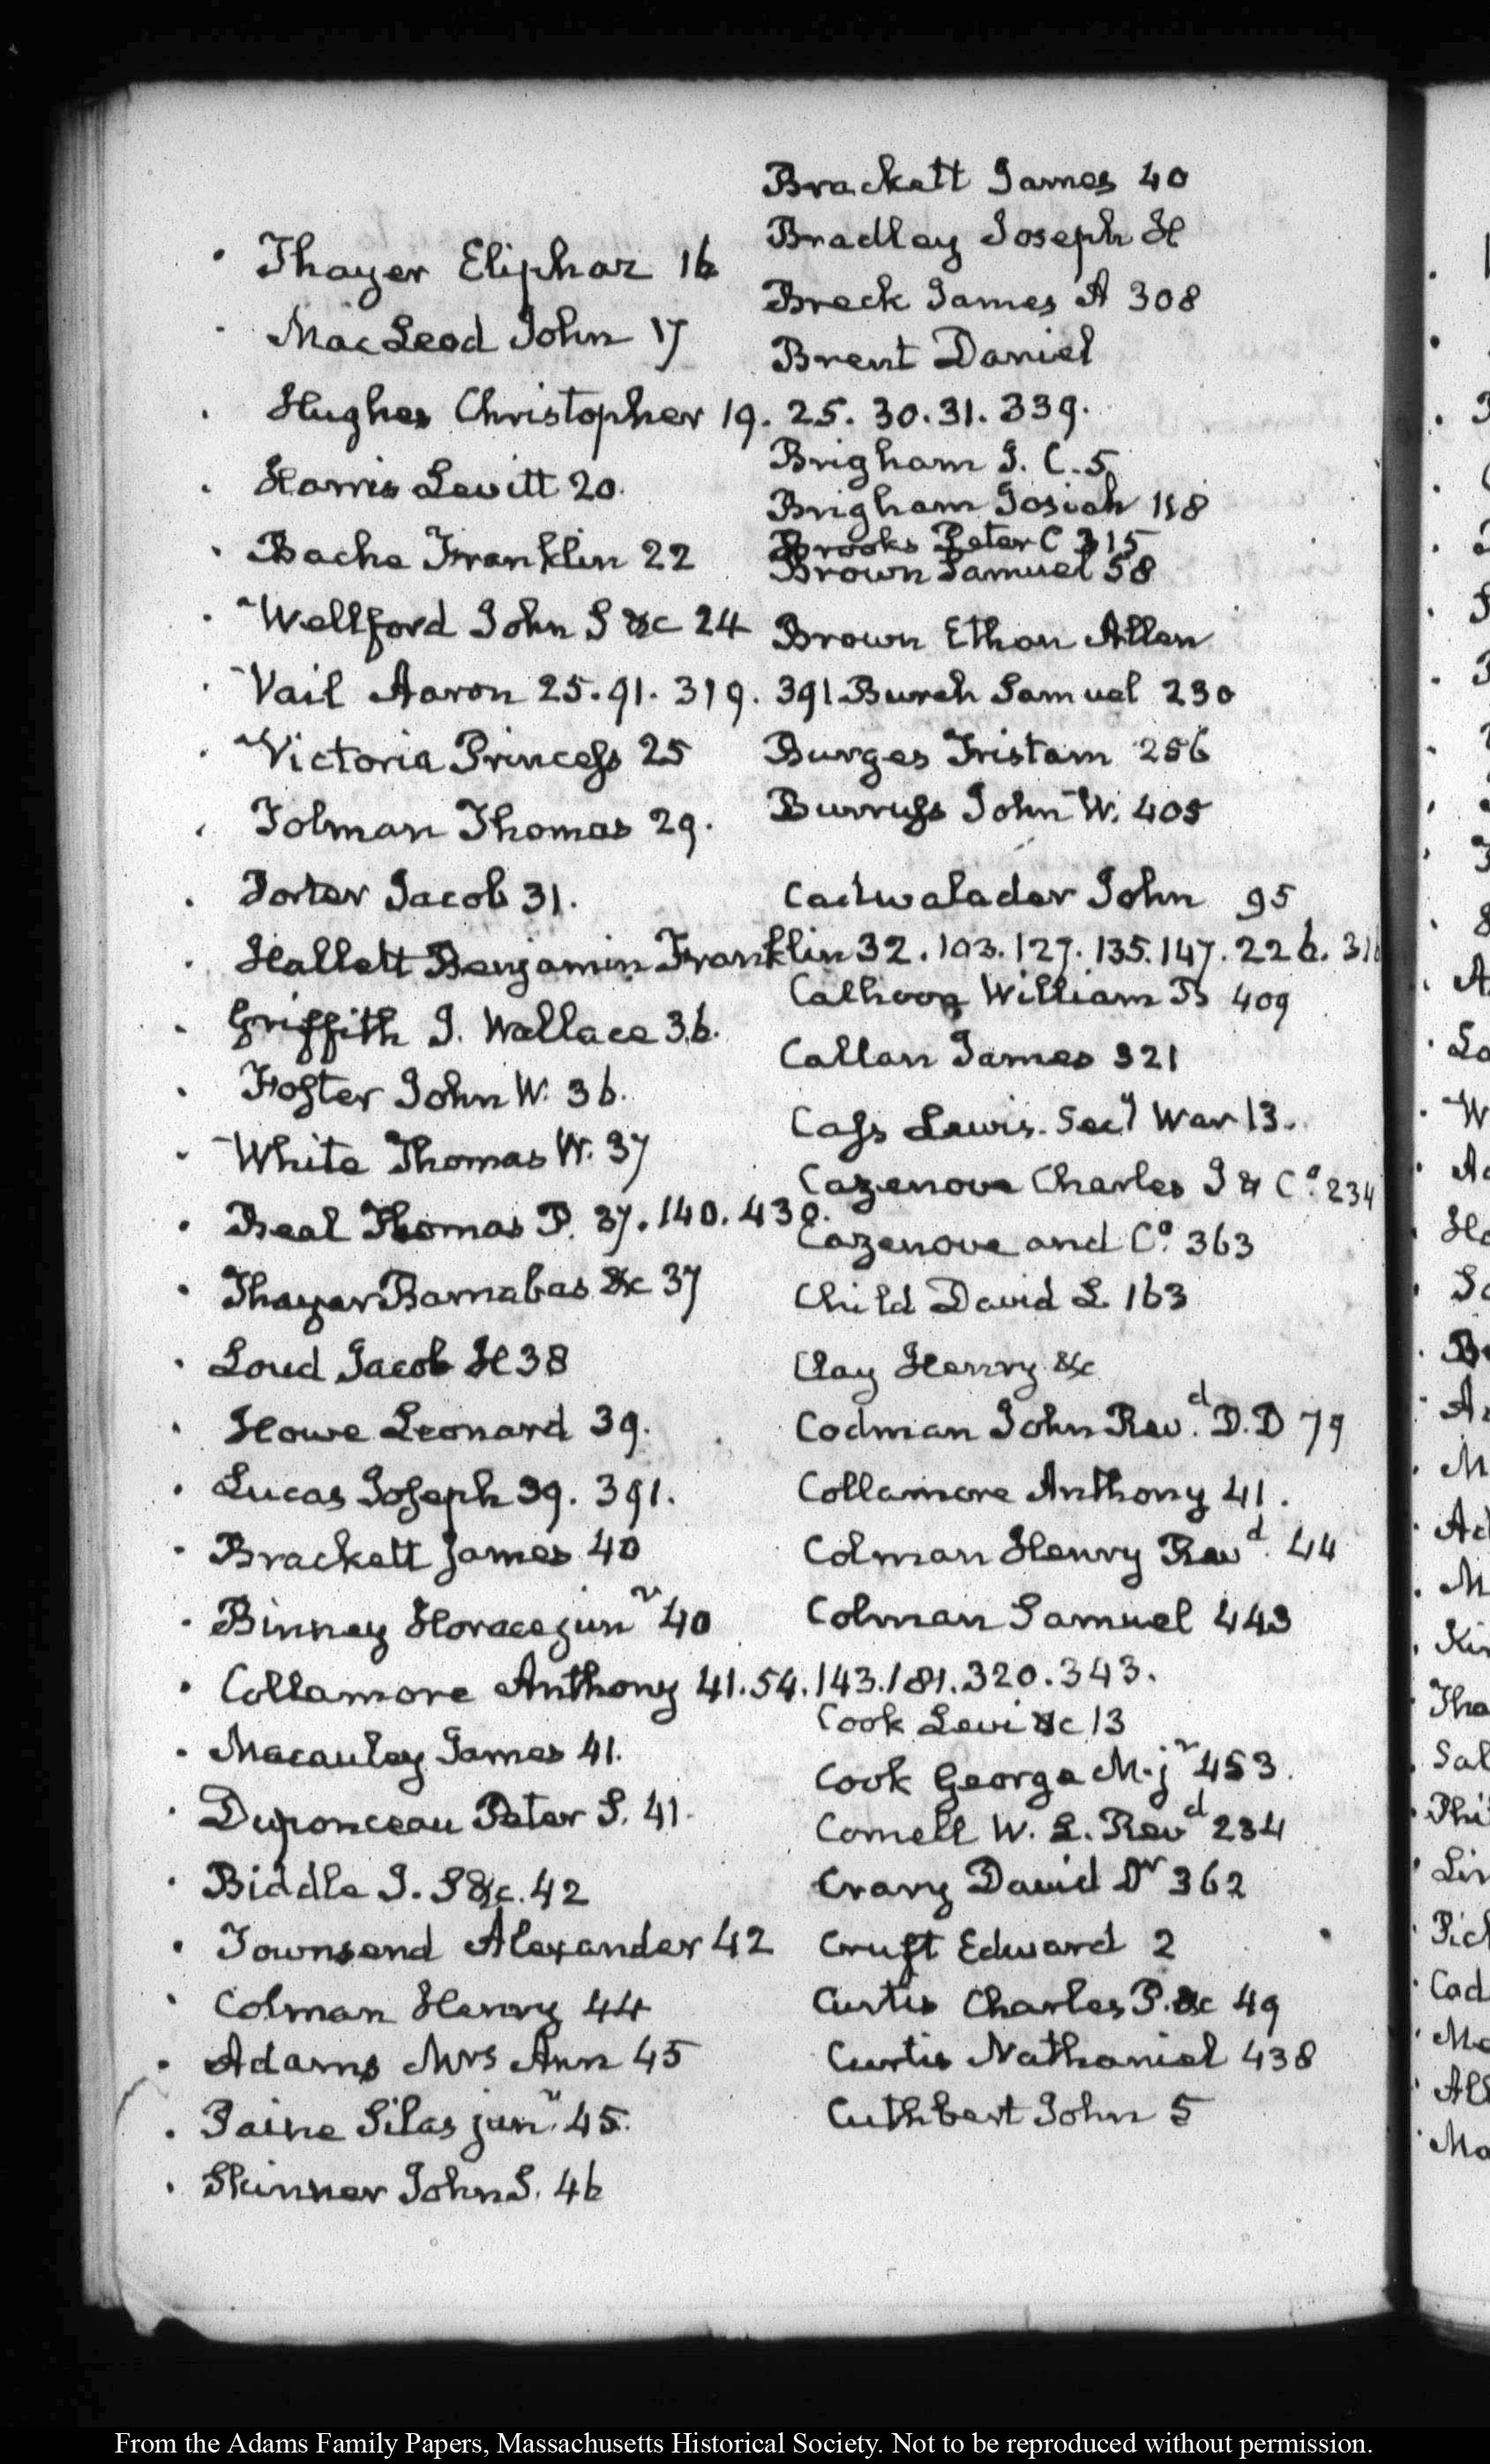 Thayer Eliphaz 16
MacLeod John 17
Hughes Christopher 19. 25. 30. 31. 339.
Harris Levitt 20.
Bache Franklin 22
Wellford John S &c 24
Vail Aaron 25. 91. 319. 391
Victoria Princess 25
Tolman Thomas 29.
Porter Jacob 31.
Hallett Benjamin Franklin 32. 103. 127. 135. 147. 226.
Griffith J. Wallace 36.
Foster John W. 36.
White Thomas W. 37
Beal Thomas P. 37. 140. 430.
Thayer Barnabas &c 37
Loud Jacob H 38
Howe Leonard 39.
Lucas Joseph 39. 391.
Brackett James 40
Binney Horace junr 40
Collamore Anthony 41. 54. 143. 181. 320. 343.
Macauley James 41.
Duponceau Peter S. 41.
Biddle J. S &c. 42
Townsend Alexander 42
Colman Henry 44
Adams Mrs Ann 45
Paine Silas junr. 45.
Skinner John S. 46
Brackett James 40
Bradley Joseph H
Breck James A 308
Brent Daniel
Brigham J. C. 5
Brigham Josiah 158
Brooks Peter C 315
Brown Samuel 58
Brown Ethan Allen
Burch Samuel 230
Burges Tristam 256
Burruss John W. 405
Cadwalader John 95
Calhoon William B 409
Callan James 321
Cass Lewis. Secy War 13.
Cazenove Charles J & Co. 234
Cazenove and Co. 363
Child David L 163
Clay Henry &c
Codman John Revd. D.D 79
Collamore Anthony 41.
Colman Henry Revd. 44
Colman Samuel 443
Cook Levi &c 13
Cook George M. jr 453.
Cornell W. L. Revd 234
Crary David Dr 362
Cruft Edward 2
Curtis Charles P. &c 49
Curtis Nathaniel 438
Cuthbert John 5
From the Adams Family Papers, Massachusetts Historical Society. Not to be reproduced without permission.